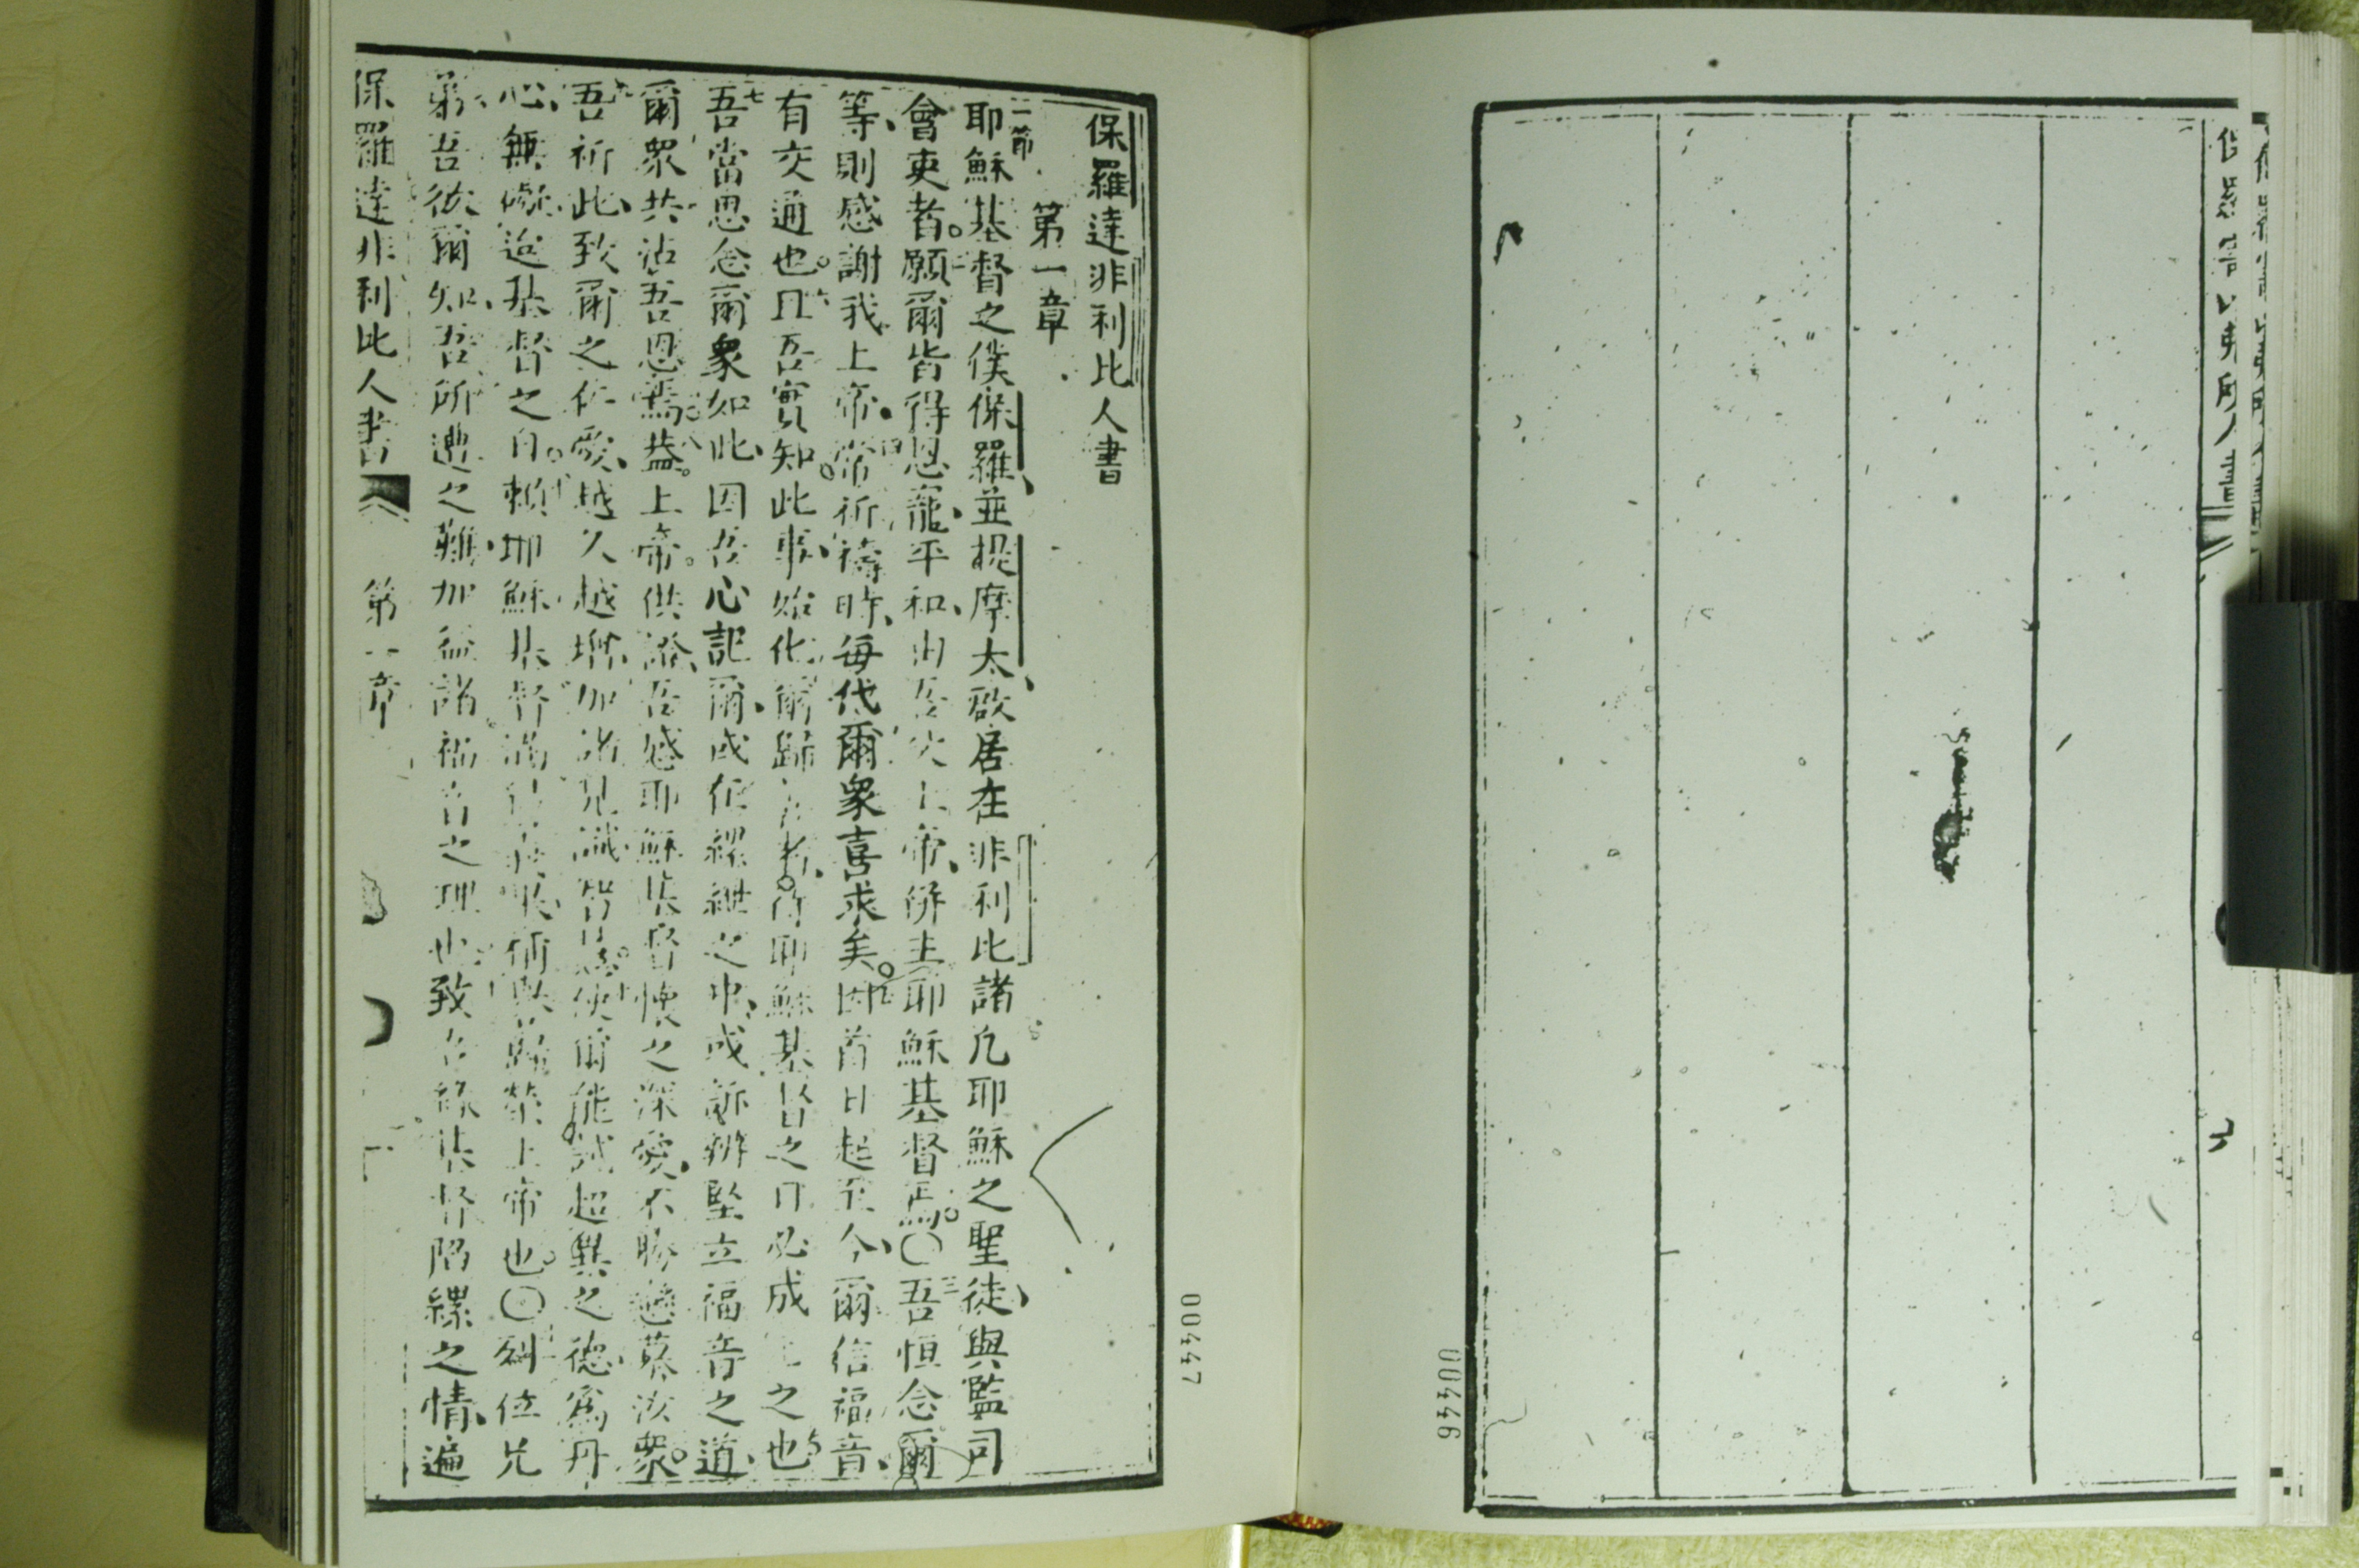 保羅寄以弗所人書
00446
保羅達非利比人書
第一章
一節
耶穌基督之僕保羅、並提摩太、啟居在非利比諸凡耶穌之聖徒、與監司
會吏者。願爾皆得恩寵、平和、由吾父上帝、併主耶穌基督焉。〇三吾恒念爾
等、則感謝我上帝。四常祈禱時、每代爾衆喜求矣。五因首日起至今、爾信福音、
有交通也。六且吾實知此事、始化爾歸 者、待耶穌基督之日必成 之也
七吾當思念爾衆如此、因吾心記爾、或在縲絏之中、或訴辨堅立福音之道、
爾衆共沾吾恩焉。八蓋上帝供證、吾感耶穌基督懷之深愛、不勝戀慕汝衆。
吾祈此、致爾之仁愛、越久越增、加諸見識智慧。使爾能試超異之德、為丹
心、無礙、迨基督之日。賴耶穌基督滿 歸榮上帝也。〇列位兄
弟、吾欲爾知、吾所遭之難、加益諸福音之理也、致吾緣基督陷縲之情、遍
保羅達非利比人書 第一章
00447